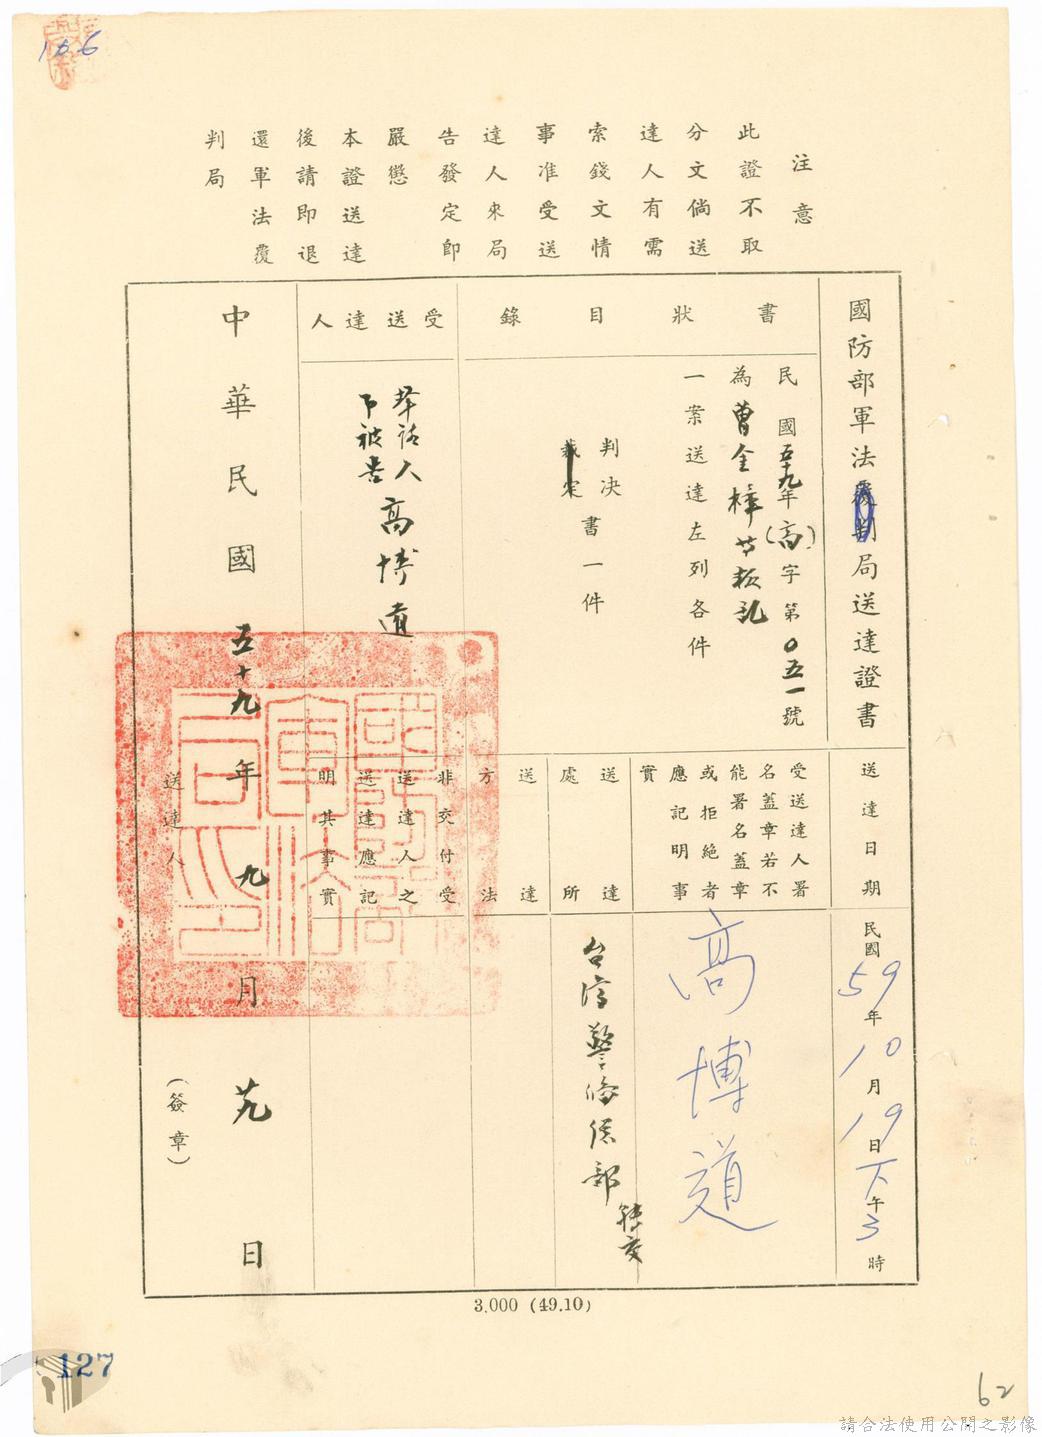 166
注意
此證不取
分文倘送
達人有需
索錢文情
事准受送
達人來局
告發定即
嚴懲
本證送達
後請即退
還軍法覆
判局
國防部軍法覆判局送達證書
書狀目錄
民國五十九年(高)字第0五一號
為曹金樟等叛亂
一案送達左列各件
判決
裁定
書一件
受送達人
聲請人
即被告
高博道
中華民國五十九年九月廿九日
送達日期
民國59年10月19日下午3時
受送達人署
名蓋章若不
能署名蓋章
或拒絕者
應記明事
實
高博道
送達處所
台灣警備總部
轉交
送達方法
非交付受
送達人之
送達應記
明其事實
送達人
(簽章)
國防部軍法局之印
3.000 (49.10)
127
62
請合法使用公開之影像